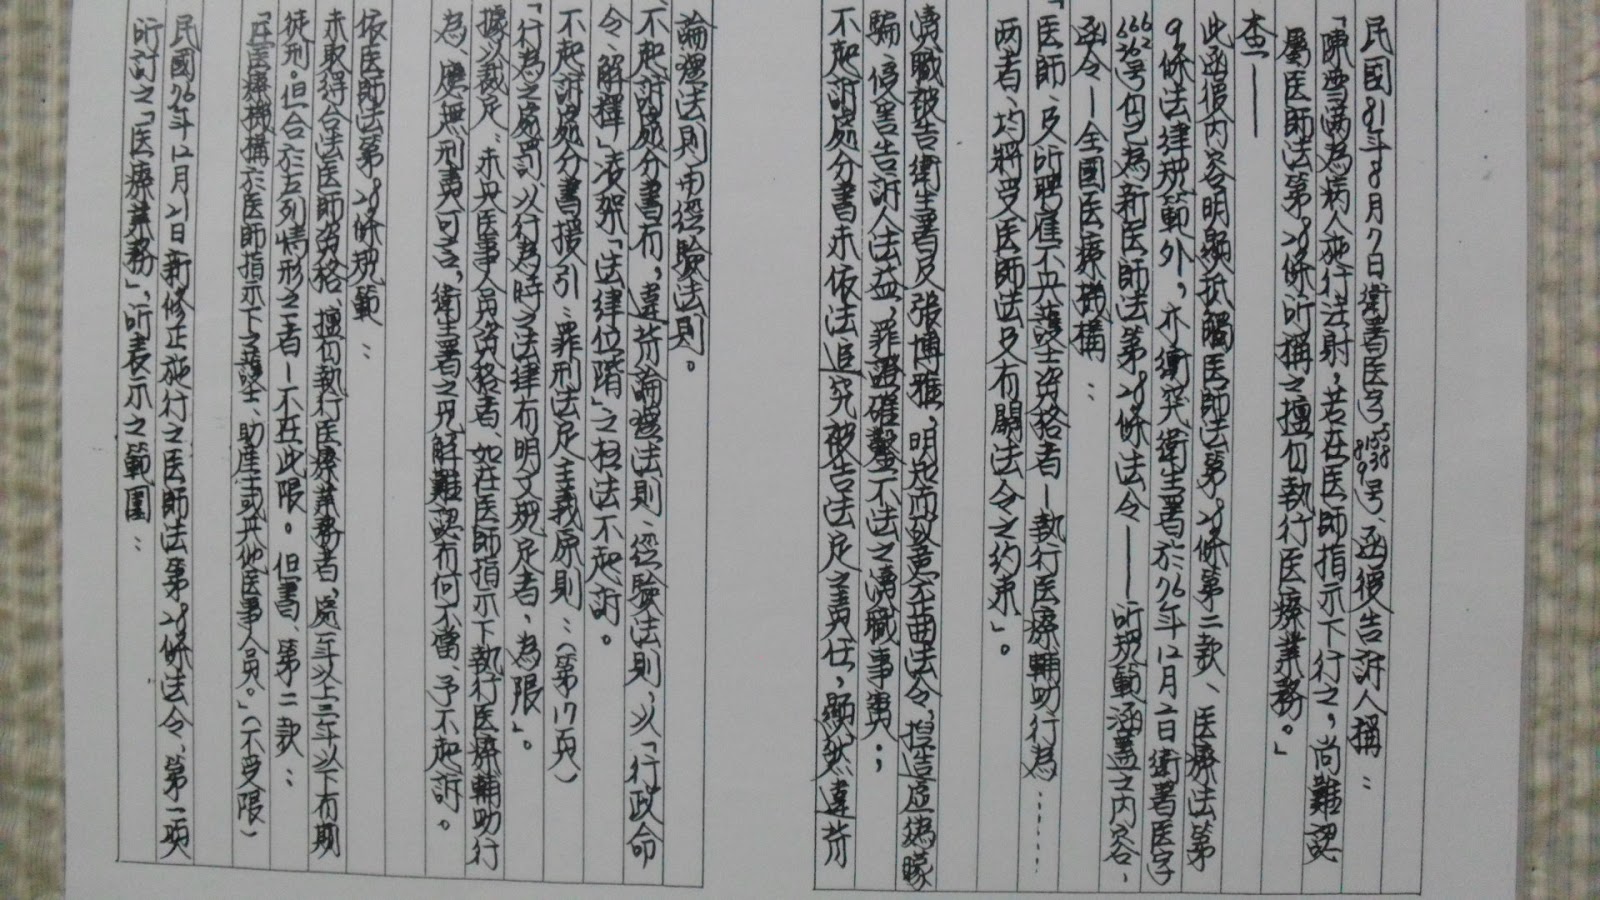 民國81年8月7日衛署医字8155389号、函復告訴人稱：
「陳雪满為病人施行注射，若在医師指示下行之，尚難認
屬医師法第28條所稱之擅自執行医療業務。」
查——
此函復內容明顯抵觸医師法第28條第二款、医療法第
9條法律規範外，亦衝突衛生署於76年12月2日衛署医字
号伯已為新医師法第28條法令——所規範涵盖之内容、
函令—全國医療機構：
「医師、及所聘雇不具護士資格者—執行医療輔助行為……
两者、均將受医師法及有關法令之約束」。
瀆職被告衛生署長張博雅，明知而故意歪曲法令，捏造虛偽矇
騙、侵害告訴人法益，罪證確鑿不法之瀆職事實；
不起訴處分書未依法追究被告法定之責任，顯然違背
論理法則、與經驗法則。
不起訴處分書有，違背論理法則、經驗法則，以「行政命
令、解釋」凌架「法律位階」之枉法不起訴。
不起訴處分書援引：罪刑法定主義原則：（第17頁）
「行為之處罰，以行為時之法律有明文規定者，為限」。
據以裁定：未具医事人員資格者、如在医師指示下執行医療輔助行
為、應無刑責可言，衛生署之見解難認有何不當、予不起訴。
依医師法第28條規範：
未取得合法医師資格，擅自執行医療業務者，處一年以上三年以下有期
徒刑。但合於左列情形之一者—不在此限。但書、第二款：
「在医療機構於医師指示下之護士、助產士或其他医事人員。」（不受限）
民國76年12月21日新修正施行之医師法第28條法令、第一項
所訂之「医療業務」，所表示之範圍：